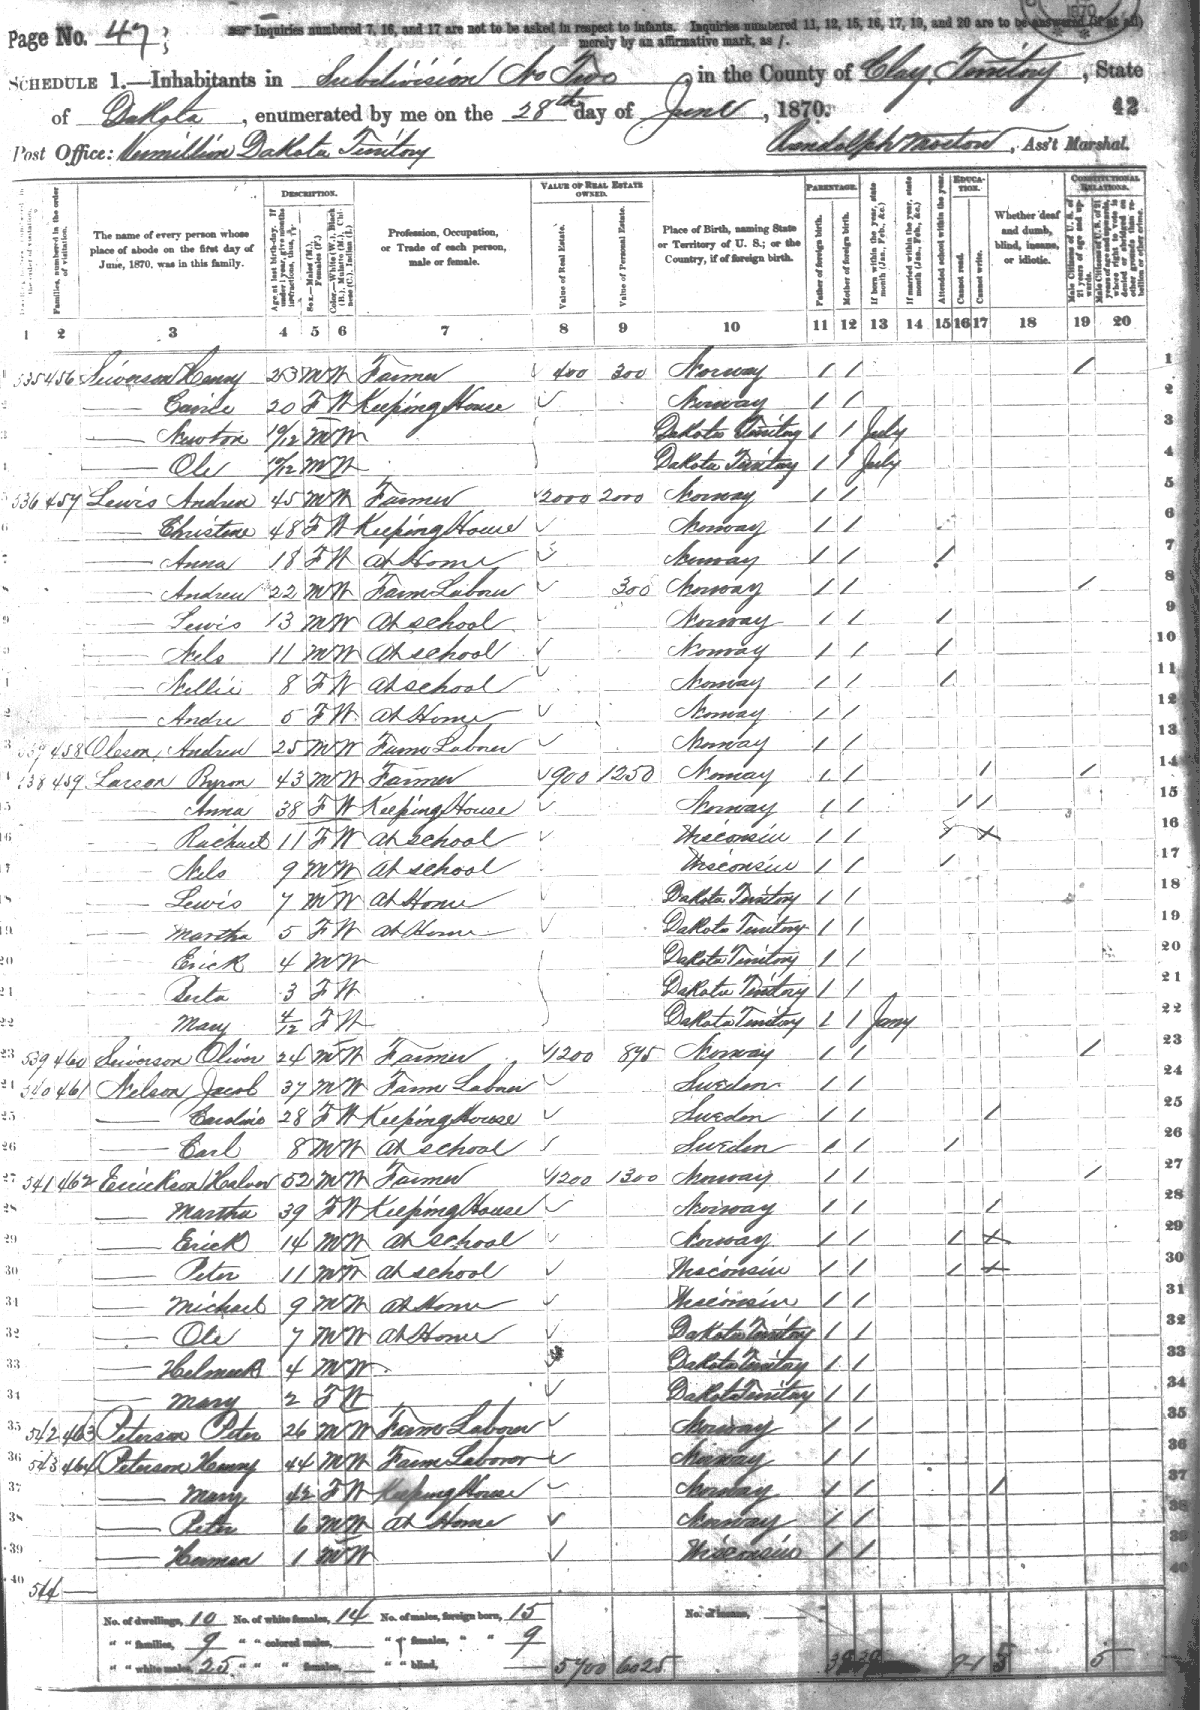 Page No. 47
Inquiries numbered 7, 16, and 17 are not to be asked in respect to infants. Inquiries numbered 11, 12, 15, 16, 17, 19, and 20 are to be answered (if at all)
merely by an affirmative mark, as /.
1870
SCHEDULE 1.—Inhabitants in Subdivision No Two, in the County of Clay Territory, State
of Dakota, enumerated by me on the 28th day of June, 1870. 42
Post Office: Vermillion Dakota Territory Randolph Morton, Ass't Marshal.
DESCRIPTION. VALUE OF REAL ESTATE OWNED. PARENTAGE. EDUCATION. CONSTITUTIONAL RELATIONS.
Families, numbered in the order of visitation.
The name of every person whose place of abode on the first day of June, 1870, was in this family.
Age at last birth-day. If under 1 year, give months in fractions, thus, 3/12
Sex.—Males (M.), Females (F.)
Color.—White (W.), Black (B.), Mulatto (M.), Chinese (C.), Indian (I.)
Profession, Occupation, or Trade of each person, male or female.
Value of Real Estate.
Value of Personal Estate.
Place of Birth, naming State or Territory of U. S.; or the Country, if of foreign birth.
Father of foreign birth.
Mother of foreign birth.
If born within the year, state month (Jan. Feb., &c.)
If married within the year, state month (Jan. Feb., &c.)
Attended school within the year.
Cannot read.
Cannot write.
Whether deaf and dumb, blind, insane, or idiotic.
Male Citizens of U. S. of 21 years of age and upwards.
Male Citizens of U. S. of 21 years of age and upwards, whose right to vote is denied or abridged on other grounds than rebellion or other crime.
1 2 3 4 5 6 7 8 9 10 11 12 13 14 15 16 17 18 19 20
535 456 Siverson Henry 23 M W Farmer 400 300 Norway / / / 1
— Carrie 20 F W Keeping House Norway / / 2
— Newton 10/12 M W Dakota Territory / / July 3
— Ole 10/12 M W Dakota Territory / / July 4
536 457 Lewis Andrew 45 M W Farmer 2000 2000 Norway / / 5
— Christine 48 F W Keeping House Norway / / 6
— Anna 18 F W At Home Norway / / / 7
— Andrew 22 M W Farm Laborer 300 Norway / / / 8
— Lewis 13 M W At school Norway / / / 9
— Nels 11 M W At school Norway / / / 10
— Nellie 8 F W At school Norway / / / 11
— Andre 5 F W At Home Norway / / 12
458 Oleson, Andrew 25 M W Farm Laborer Norway / / 13
538 459 Larson Byron 43 M W Farmer 900 1250 Norway / / / / 14
— Anna 38 F W Keeping House Norway / / / / 15
— Rachael 11 F W At school Wisconsin / / / 16
— Nels 9 M W At school Wisconsin / / / 17
— Lewis 7 M W At Home Dakota Territory / / 18
— Martha 5 F W At Home Dakota Territory / / 19
— Erick 4 M W Dakota Territory / / 20
— Berta 3 F W Dakota Territory / / 21
— Mary 4/12 F W Dakota Territory / / Jany 22
539 460 Siverson Oliver 24 M W Farmer 1200 895 Norway / / / 23
540 461 Nelson, Jacob 37 M W Farm Laborer Sweden / / 24
— Caroline 28 F W Keeping House Sweden / / / 25
— Carl 8 M W At school Sweden / / / 26
541 462 Erickson Halver 52 M W Farmer 1200 1300 Norway / / / 27
— Martha 39 F W Keeping House Norway / / / 28
— Erick 14 M W At school Norway / / / 29
— Peter 11 M W At school Wisconsin / / / 30
— Michael 9 M W At Home Wisconsin / / 31
— Ole 7 M W At Home Dakota Territory / / 32
— 4 M W Dakota Territory / / 33
— Mary 2 F W Dakota Territory / / 34
542 463 Peterson Peter 26 M W Farm Laborer Norway / / 35
543 464 Peterson Henry 44 M W Farm Laborer Norway / / 36
— Mary 42 F W Keeping House Norway / / / 37
— Peter 6 M W At Home Norway / / 38
— Herman 1 M W Wisconsin / / 39
544 — 40
No. of dwellings, 10 No. of white females, 14 No. of males, foreign born, 15 No. of insane,
" " families, 9 " " colored males, — " " females, " " 9
" " white males, 25 " " " females, — " " blind, — 5700 6025 39 39 9 1 5 5